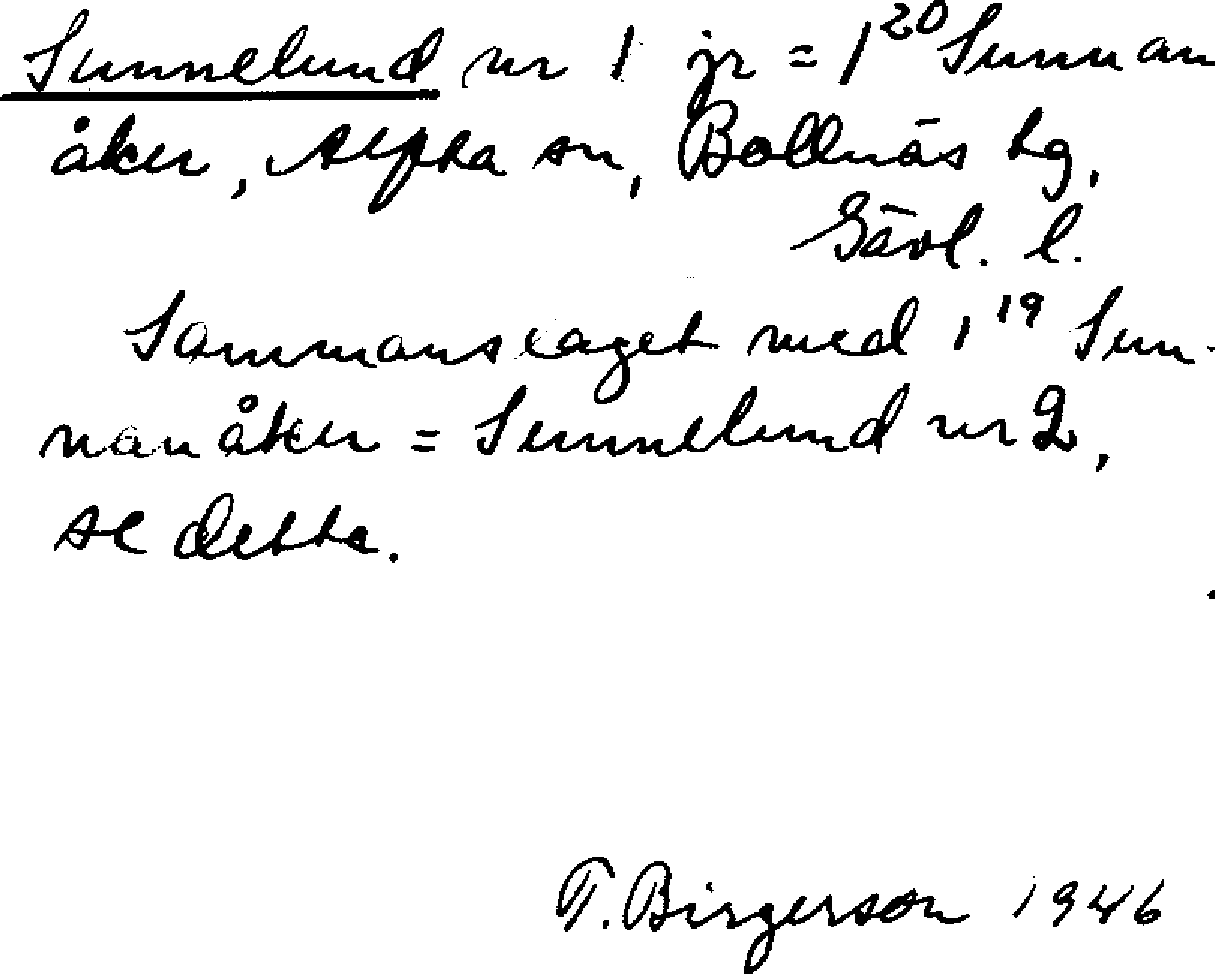 Sunnelund nr 1 jr = 1²⁰ Sunnan
åker, Alfta sn, Bollnäs tg,
Gävl. l.
Sammanslaget med 1¹⁹ Sun-
nanåker = Sunnelund nr 2,
se detta.
T. Birgerson 1946